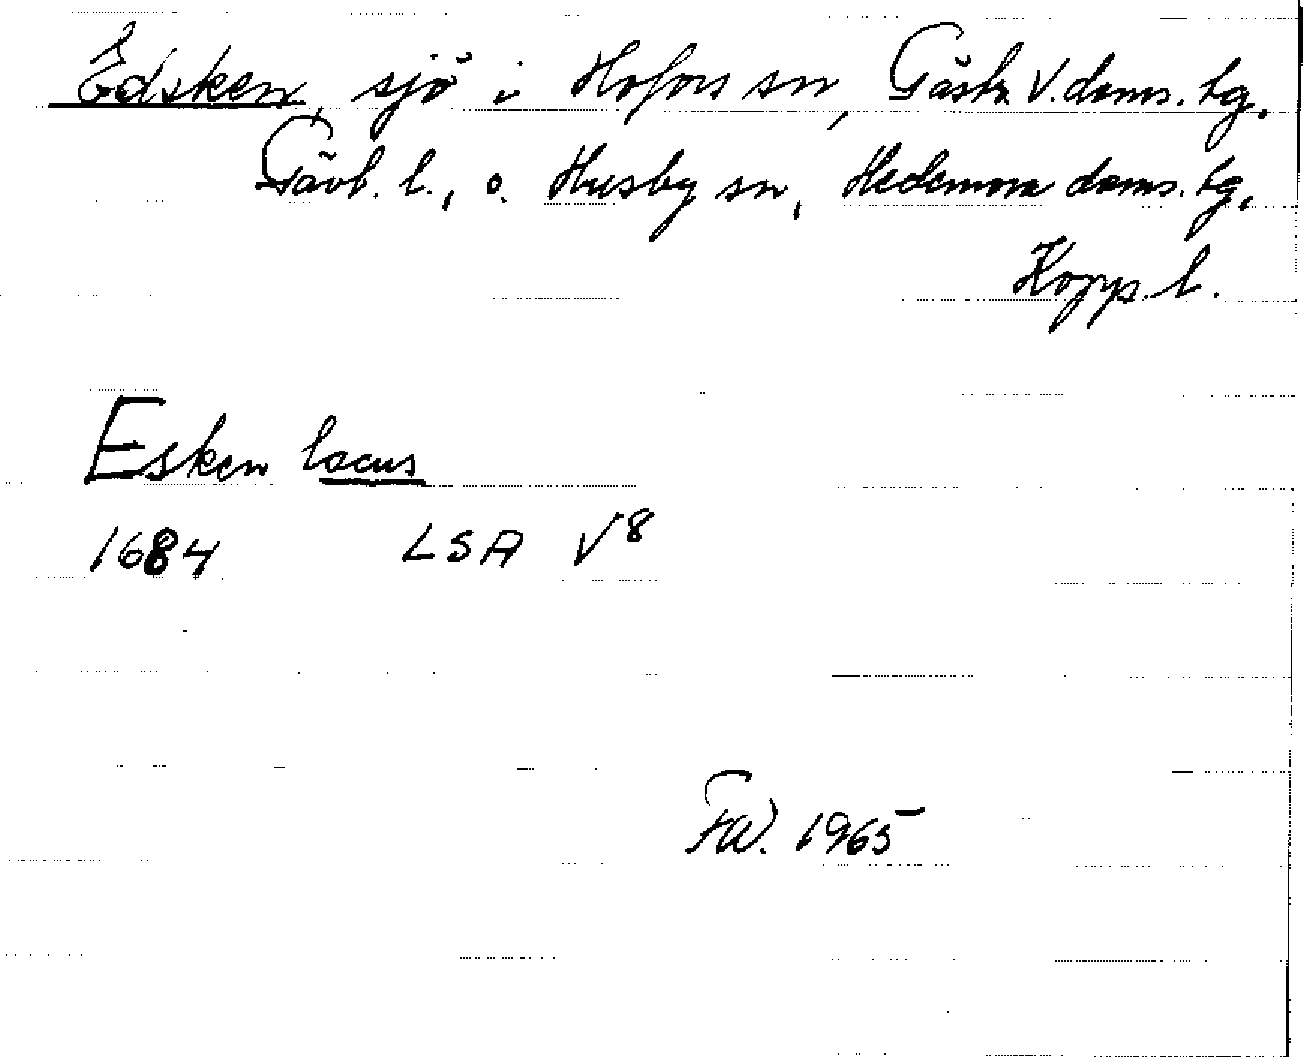 Edsken, sjö i Hofors sn, Gästr. V. doms. tg,
Gävl. l., o. Husby sn, Hedemora doms. tg,
Kopp. l.
Esken lacus
1684 LSA V8
FW. 1965